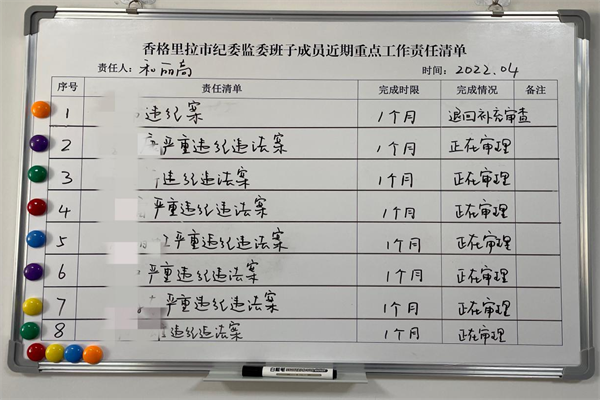 香格里拉市纪委监委班子成员近期重点工作责任清单
责任人：和丽高 时间：2022.04
序号 责任清单 完成时限 完成情况 备注
1 违纪案 1个月 退回补充审查
2 严重违纪违法案 1个月 正在审理
3 违纪违法案 1个月 正在审理
4 严重违纪违法案 1个月 正在审理
5 严重违纪违法案 1个月 正在审理
6 严重违纪违法案 1个月 正在审理
7 严重违纪违法案 1个月 正在审理
8 违纪违法案 1个月 正在审理